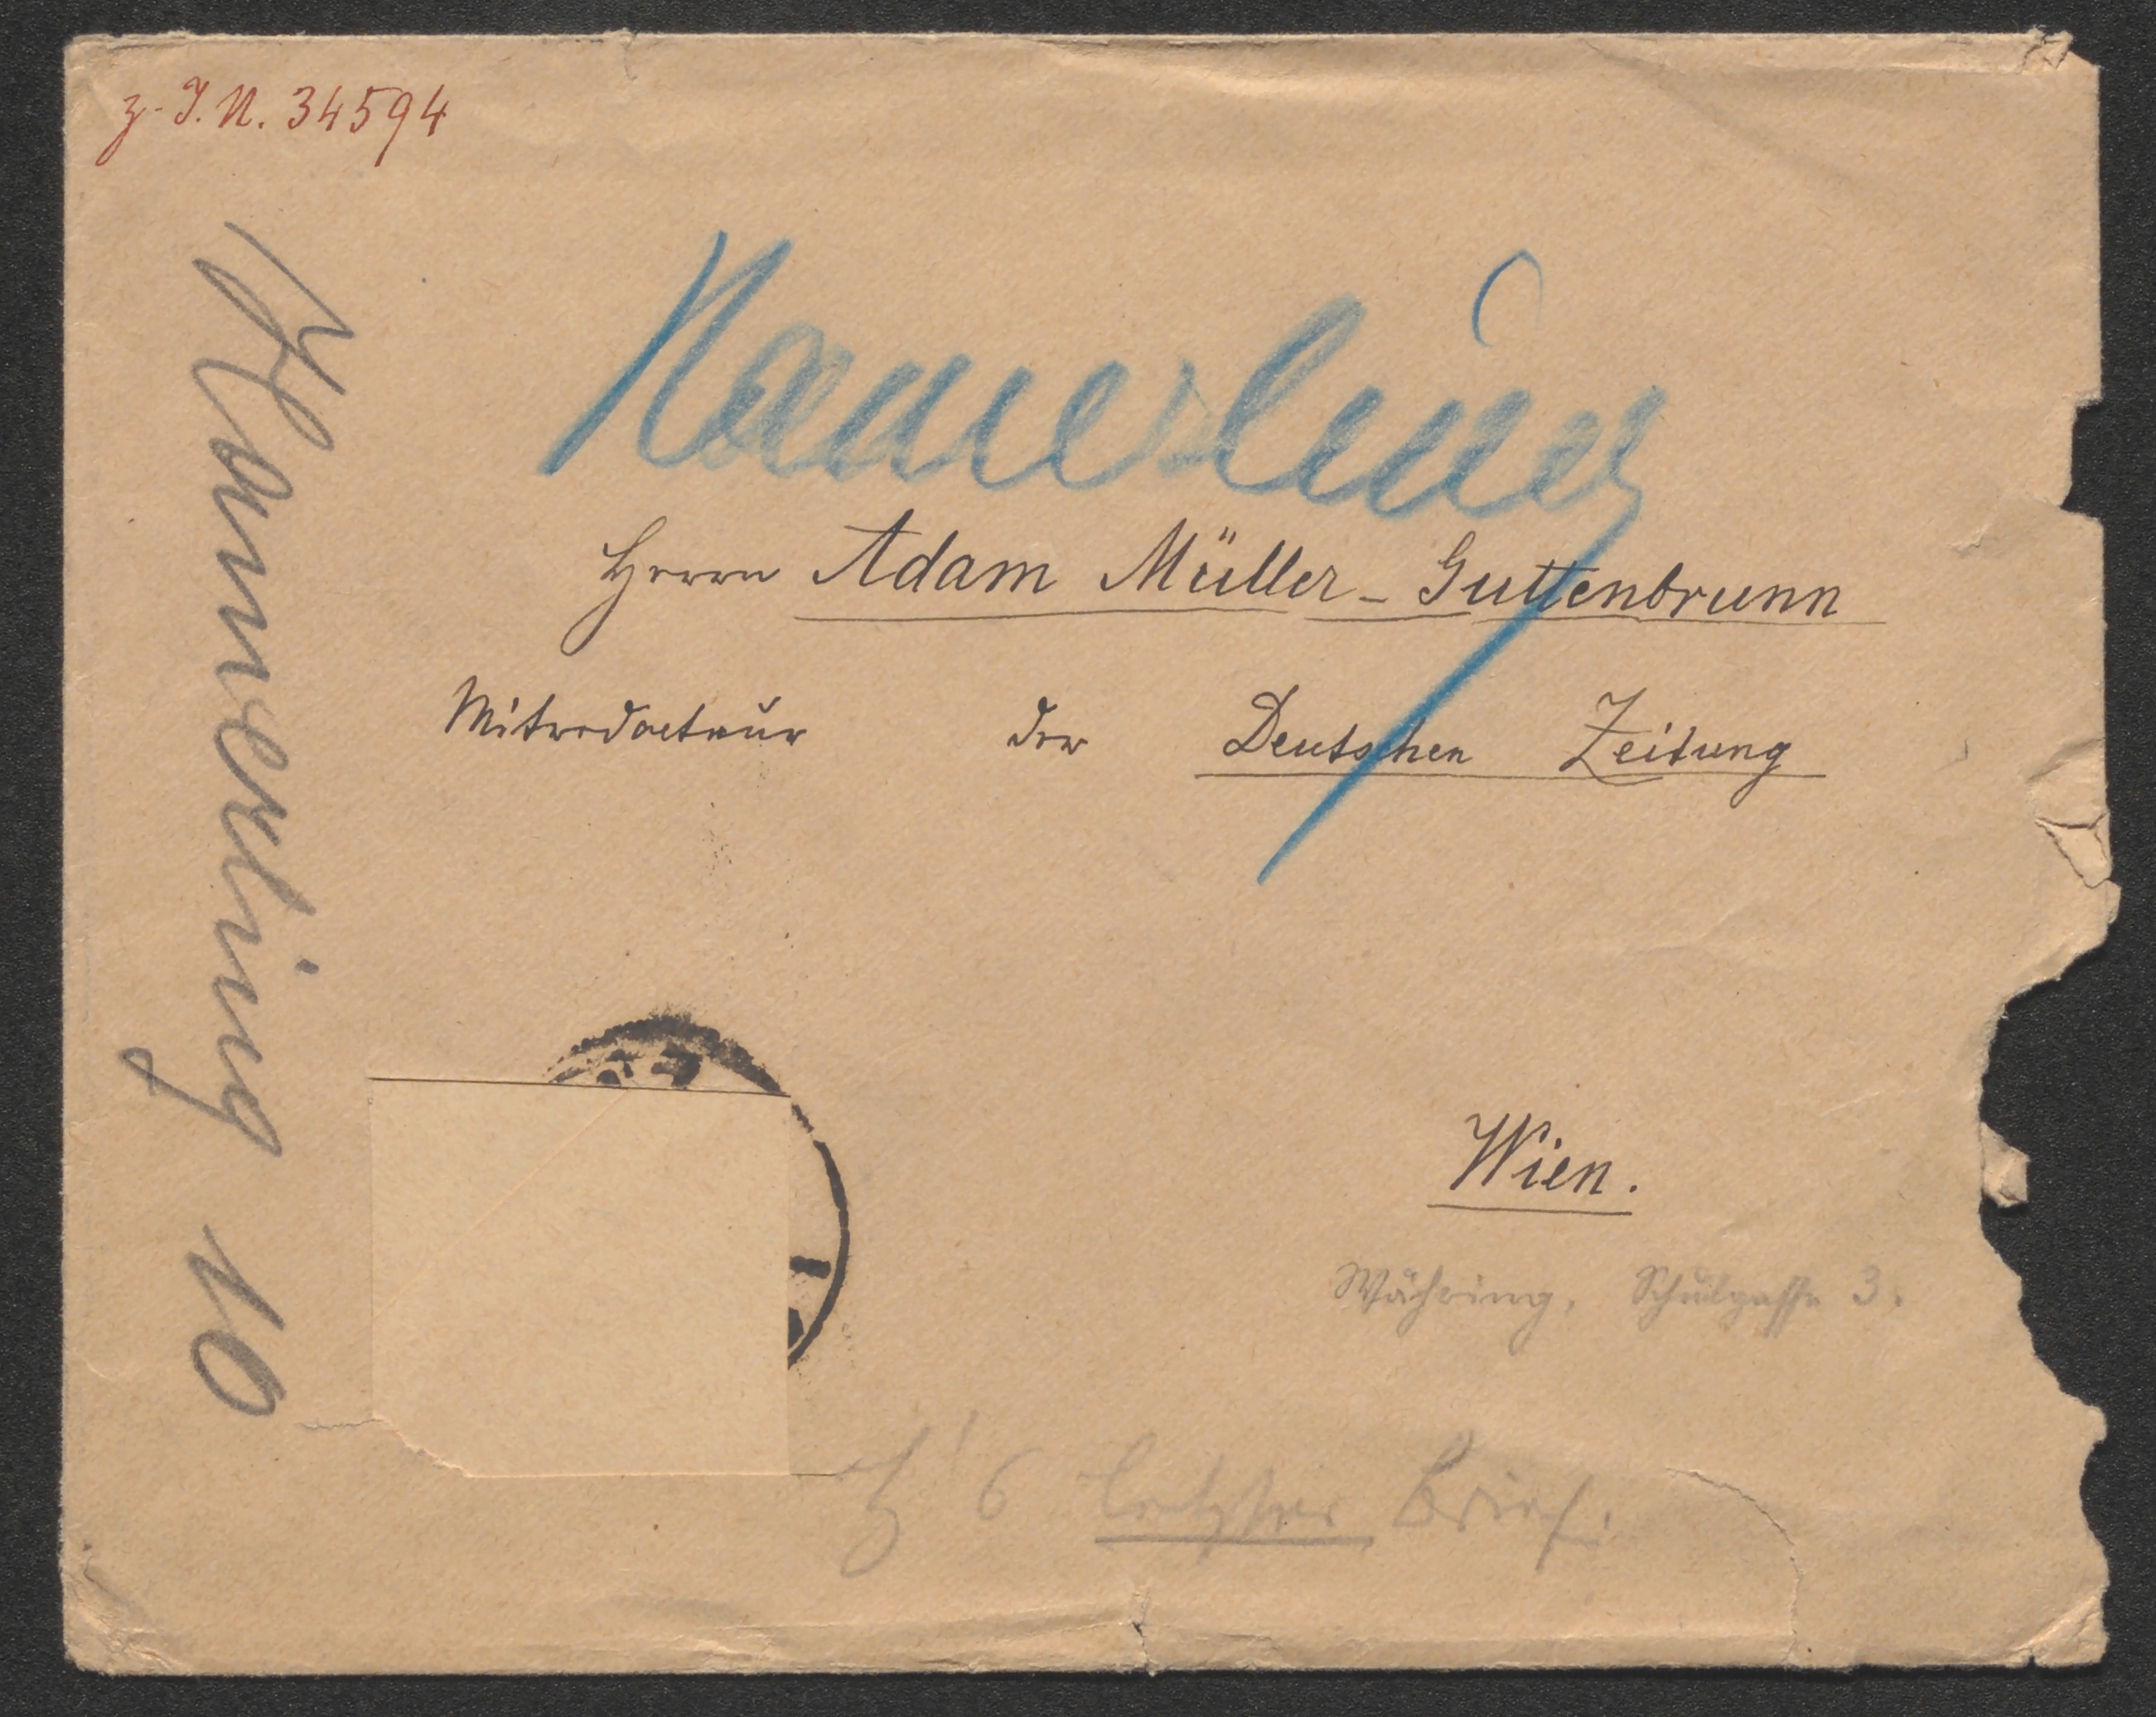 z. I. N. 34594
Hamerling 10
Hamerling
Herrn Adam Müller-Guttenbrunn
Mitredacteur der Deutschen Zeitung
Wien.
Währing, Schulgasse 3.
H's letzter Brief.